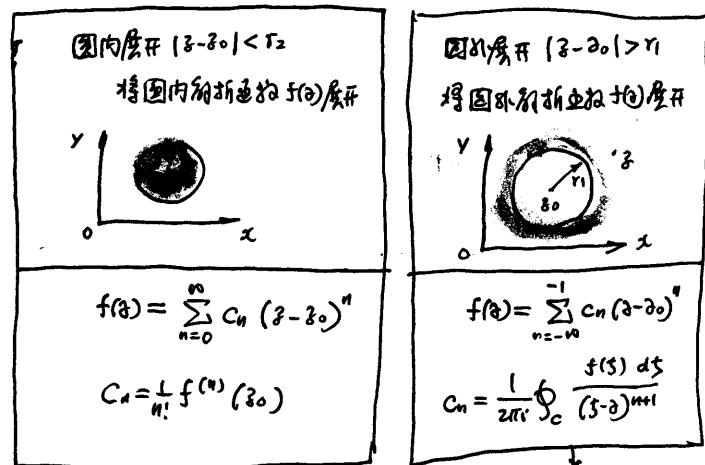 圆内展开 |z-z₀|<r₂
将圆内解析函数 f(z) 展开
y
0
x
f(z) = ∑_{n=0}^{∞} Cₙ (z-z₀)ⁿ
Cₙ = 1/n! f⁽ⁿ⁾(z₀)
圆外展开 |z-z₀|>r₁
将圆外解析函数 f(z) 展开
y
z
r₁
z₀
0
x
f(z) = ∑_{n=-∞}^{-1} Cₙ (z-z₀)ⁿ
Cₙ = 1/2πi ∮_C f(ζ) dζ/(ζ-z)ⁿ⁺¹